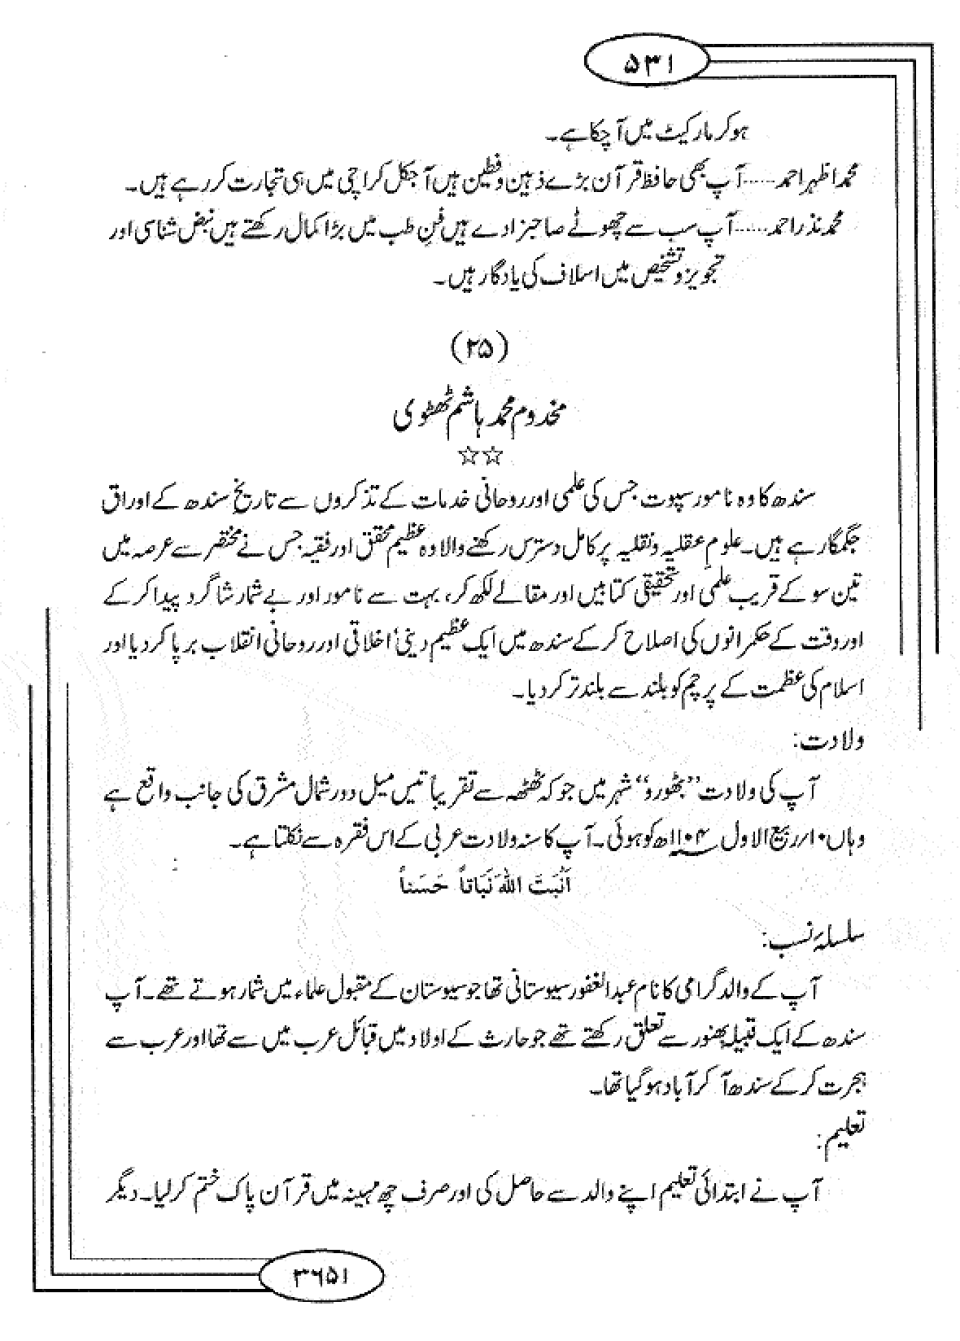 ۵۳۱
ہوکر مارکیٹ میں آچکا ہے۔
محمد اظہر احمد.....آپ بھی حافظ قرآن بڑے ذہین و فطین ہیں آجکل کراچی میں ہی تجارت کر رہے ہیں۔
محمد نذر احمد.....آپ سب سے چھوٹے صاحبزادے ہیں فنِ طب میں بڑا کمال رکھتے ہیں نبض شناسی اور
تجویز و تشخیص میں اسلاف کی یادگار ہیں۔
(۲۵)
مخدوم محمد ہاشم ٹھٹوی
☆☆
سندھ کا وہ نامور سپوت جس کی علمی اور روحانی خدمات کے تذکروں سے تاریخِ سندھ کے اوراق
جگمگا رہے ہیں۔ علومِ عقلیہ و نقلیہ پر کامل دسترس رکھنے والا وہ عظیم محقق اور فقیہ جس نے مختصر سے عرصہ میں
تین سو کے قریب علمی اور تحقیقی کتابیں اور مقالے لکھ کر، بہت سے نامور اور بے شمار شاگرد پیدا کر کے
اور وقت کے حکمرانوں کی اصلاح کر کے سندھ میں ایک عظیم دینی‘ اخلاقی اور روحانی انقلاب برپا کردیا اور
اسلام کی عظمت کے پرچم کو بلند سے بلند تر کردیا۔
ولادت:
آپ کی ولادت ’’بٹھورو‘‘ شہر میں جو کہ ٹھٹھہ سے تقریباً تیس میل دور شمال مشرق کی جانب واقع ہے
وہاں ۱۰/ ربیع الاول ۱۱۰۴ھ کو ہوئی۔ آپ کا سنہ ولادت عربی کے اس فقرہ سے نکلتا ہے۔
اَنْبَتَ اللّٰہُ نَبَاتاً حَسَناً
سلسلۂ نسب:
آپ کے والد گرامی کا نام عبدالغفور سیوستانی تھا جو سیوستان کے مقبول علماء میں شمار ہوتے تھے۔ آپ
سندھ کے ایک قبیلہ پھنور سے تعلق رکھتے تھے جو حارث کے اولاد میں قبائل عرب میں سے تھا اور عرب سے
ہجرت کر کے سندھ آ کر آباد ہوگیا تھا۔
تعلیم:
آپ نے ابتدائی تعلیم اپنے والد سے حاصل کی اور صرف چھ مہینہ میں قرآن پاک ختم کرلیا۔ دیگر
۳۶۵۱